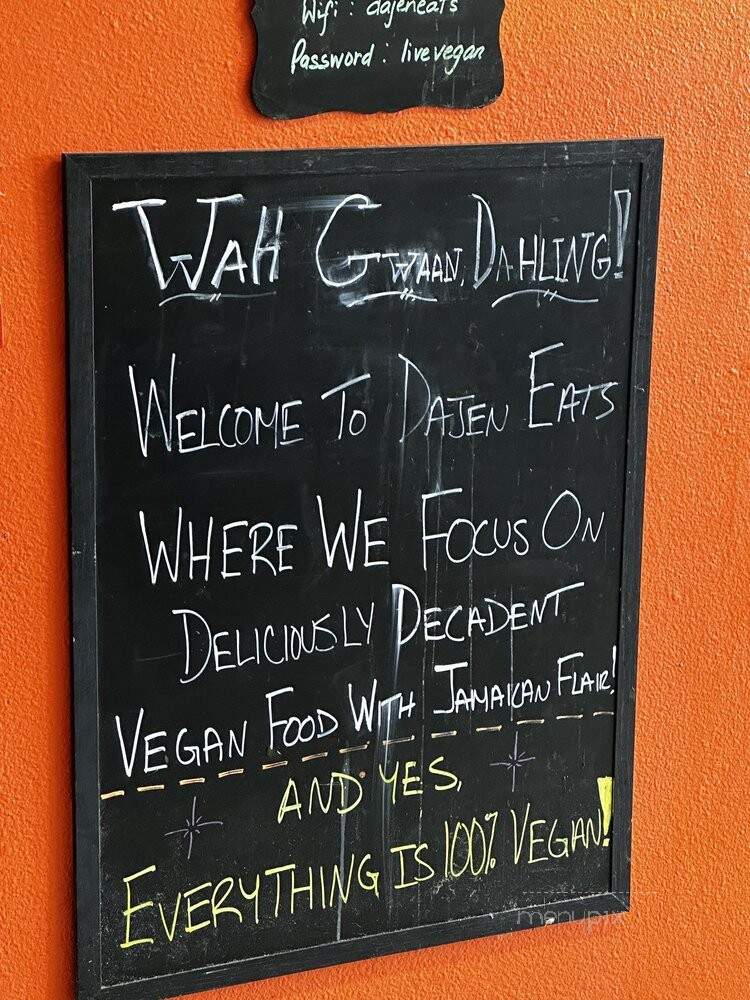 Wifi : dajeneats
Password : livevegan
WAH GWAAN, DAHLING!
WELCOME TO DAJEN EATS
WHERE WE FOCUS ON
DELICIOUSLY DECADENT
VEGAN FOOD WITH JAMAICAN FLAIR!
AND YES,
EVERYTHING IS 100% VEGAN!